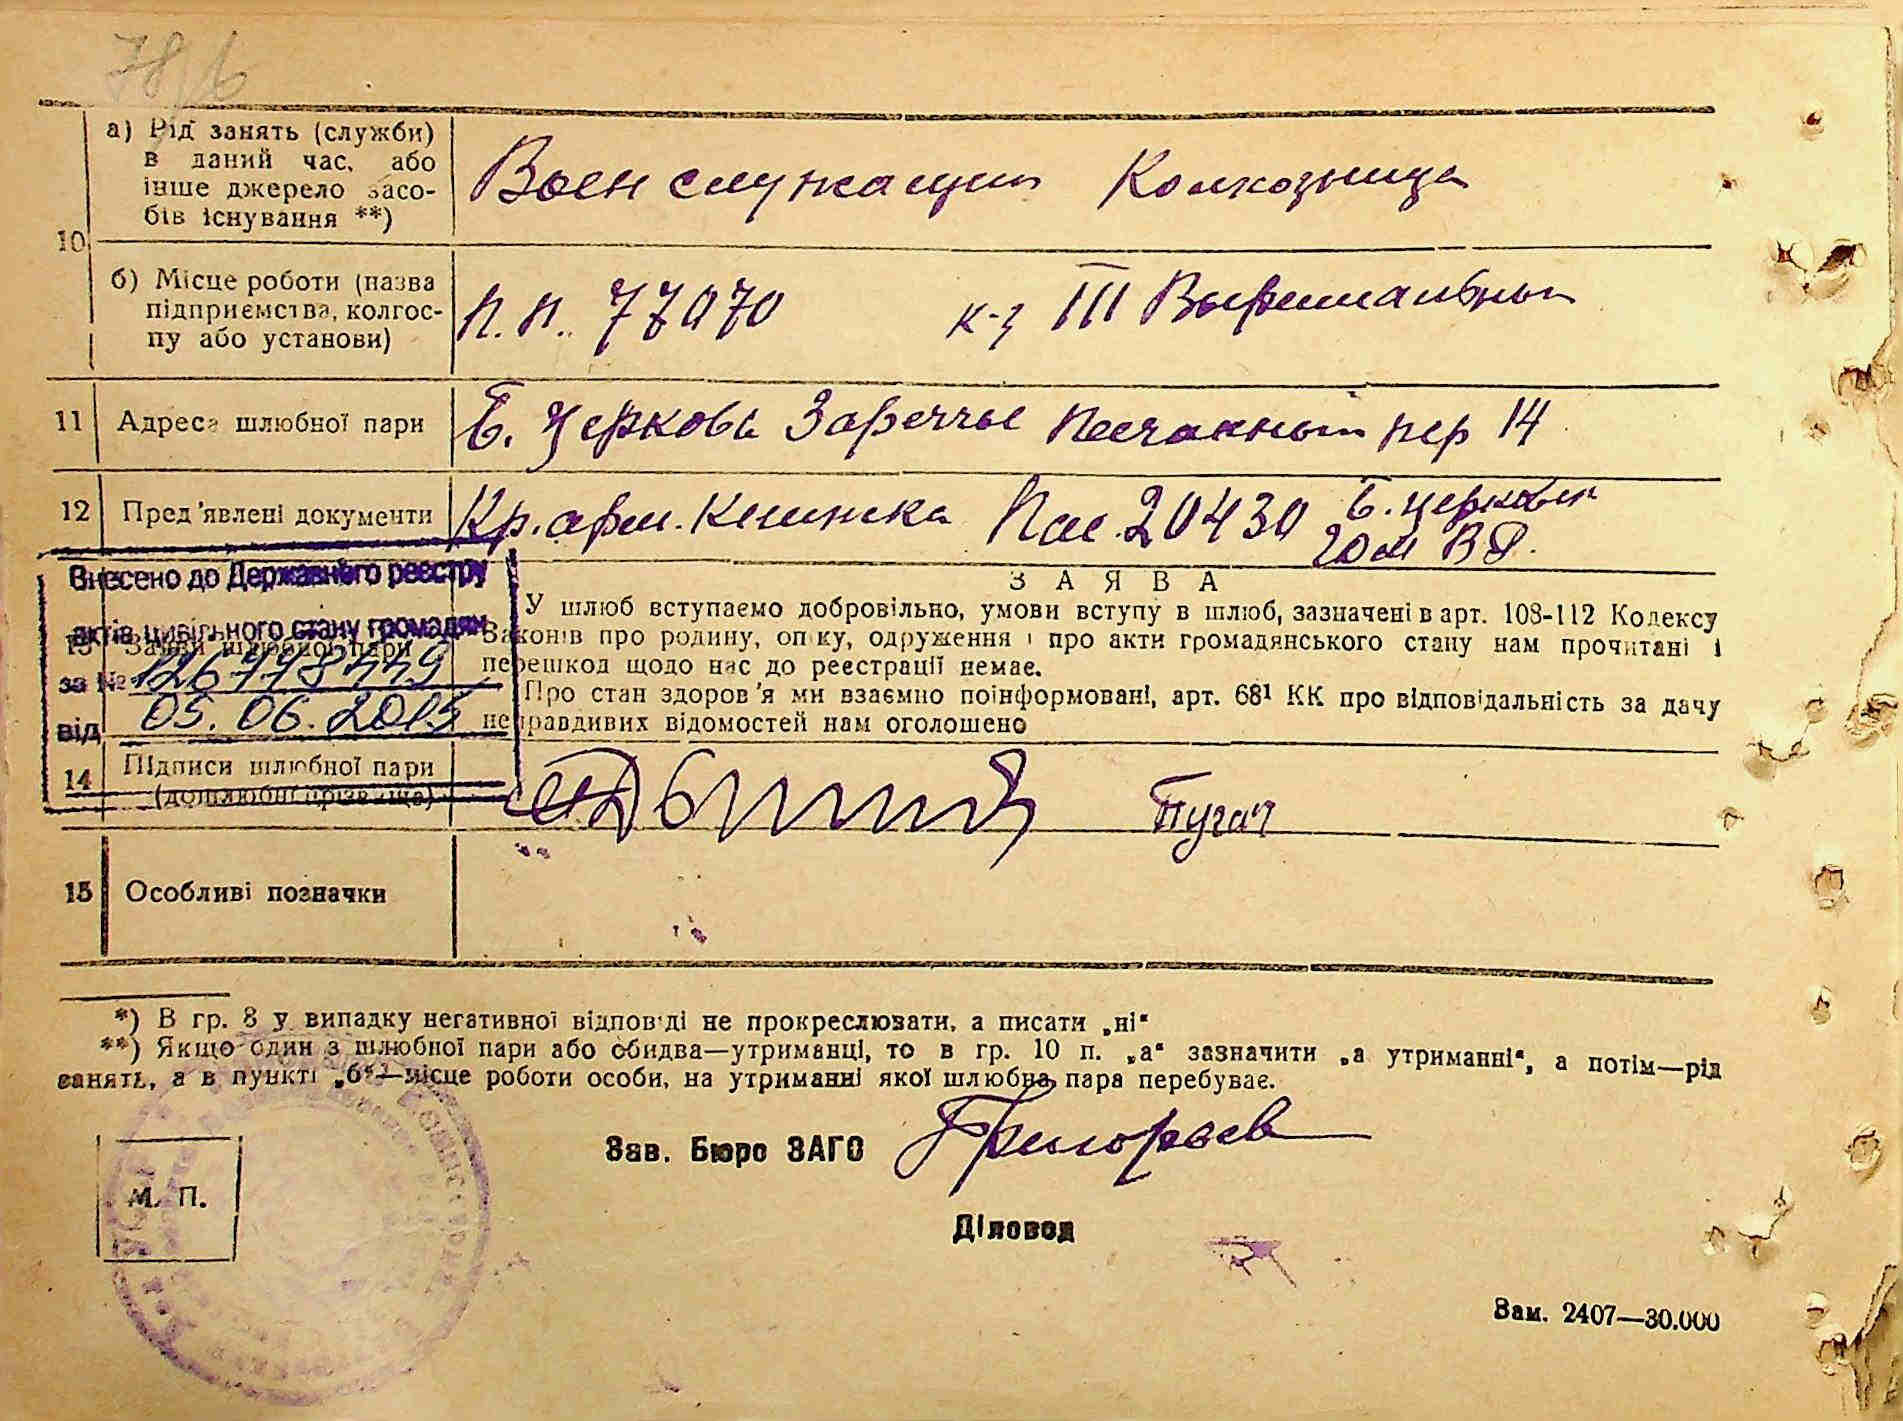 78/6
10
а) Рід занять (служби)
в даний час, або
інше джерело засо-
бів існування **)
Военслужащий Колхозница
б) Місце роботи (назва
підприємства, колгос-
пу або установи)
п.п. 77070 к-з III Вырешальный
11 Адреса шлюбної пари Б. Церковь Заречье Песчаный пер 14
12 Пред'явлені документи Кр. арм. Книжка Пас. 20430 Б. Церковск
ГОМ
Внесено до Державного реєстру
актів цивільного стану громадян
за №
від 05.06.2015
13 Заяви шлюбної пари
ЗАЯВА
У шлюб вступаємо добровільно, умови вступу в шлюб, зазначені в арт. 108-112 Кодексу
Законів про родину, опіку, одруження і про акти громадянського стану нам прочитані і
перешкод щодо нас до реєстрації немає.
Про стан здоров'я ми взаємно поінформовані, арт. 68¹ КК про відповідальність за дачу
неправдивих відомостей нам оголошено
14 Підписи шлюбної пари
(дошлюбні прізвища)
Пугач
15 Особливі позначки
*) В гр. 8 у випадку негативної відповіді не прокреслювати, а писати „ні“
**) Якщо один з шлюбної пари або обидва—утриманці, то в гр. 10 п. „а“ зазначити „а утриманні“, а потім—рід
занять, а в пункті „б“—місце роботи особи, на утриманні якої шлюбна пара перебуває.
Зав. Бюро ЗАГС Григорьев
М. П.
Діловод
Зам. 2407—30.000